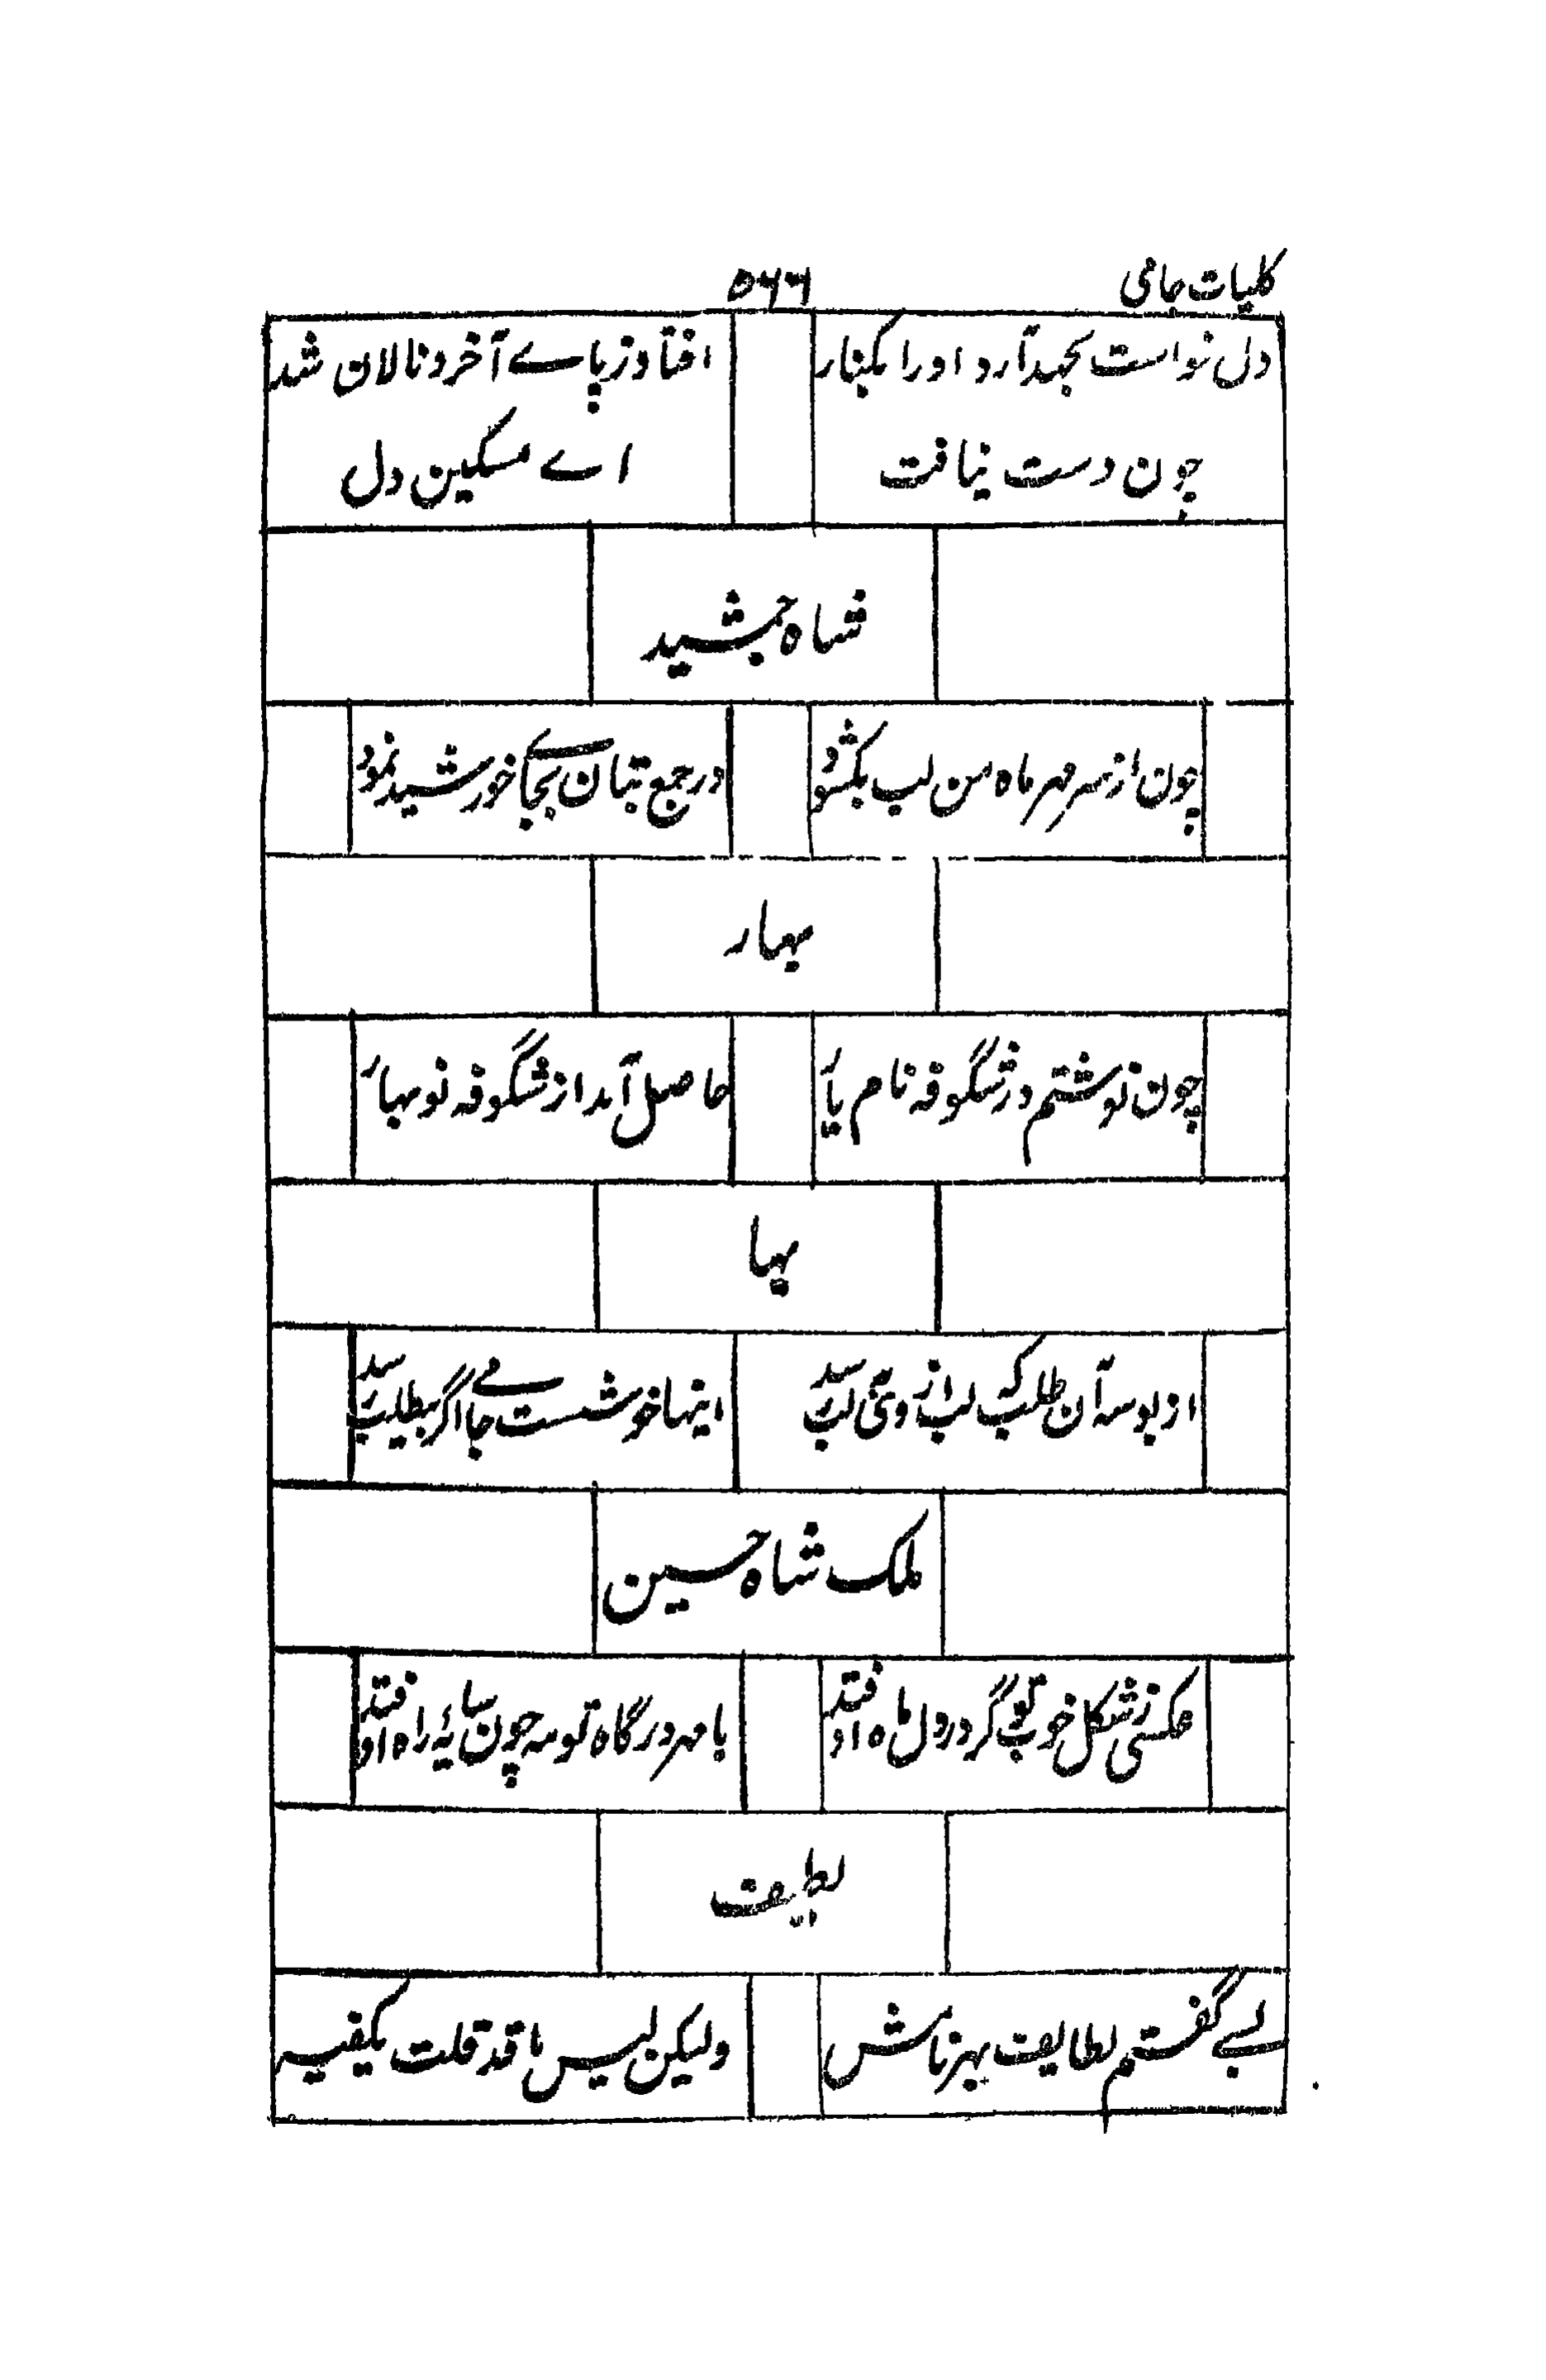 کلیات جامی
۵۶۶
دل خواست بجهد آرد او را بکنار
افتاد ز پاے آخر و نالان شد
چون دست نیافت
اے مسکین دل
شاه جمشید
چون از سر مهر ماه من لب بکشود
در جمع بتان بجاے خورشید نمود
بهار
چون نوشتم در شگوفه نام یار
حاصل آمد از شگوفه نو بهار
بها
از بوسه آن طلب که لب از وی بلب رسد
اینها خوشست جامے اگر بیطلب رسد
ملک شاه حسین
عکسی ز شکل خوب تو گر در دل ماه اوفتد
با مهر درگاه تو مه چون سایهٔ راه اوفتد
لطیف
بسے گفتم لطایف بهر نامش
ولیکن لیس ما قد قلت یکفیه